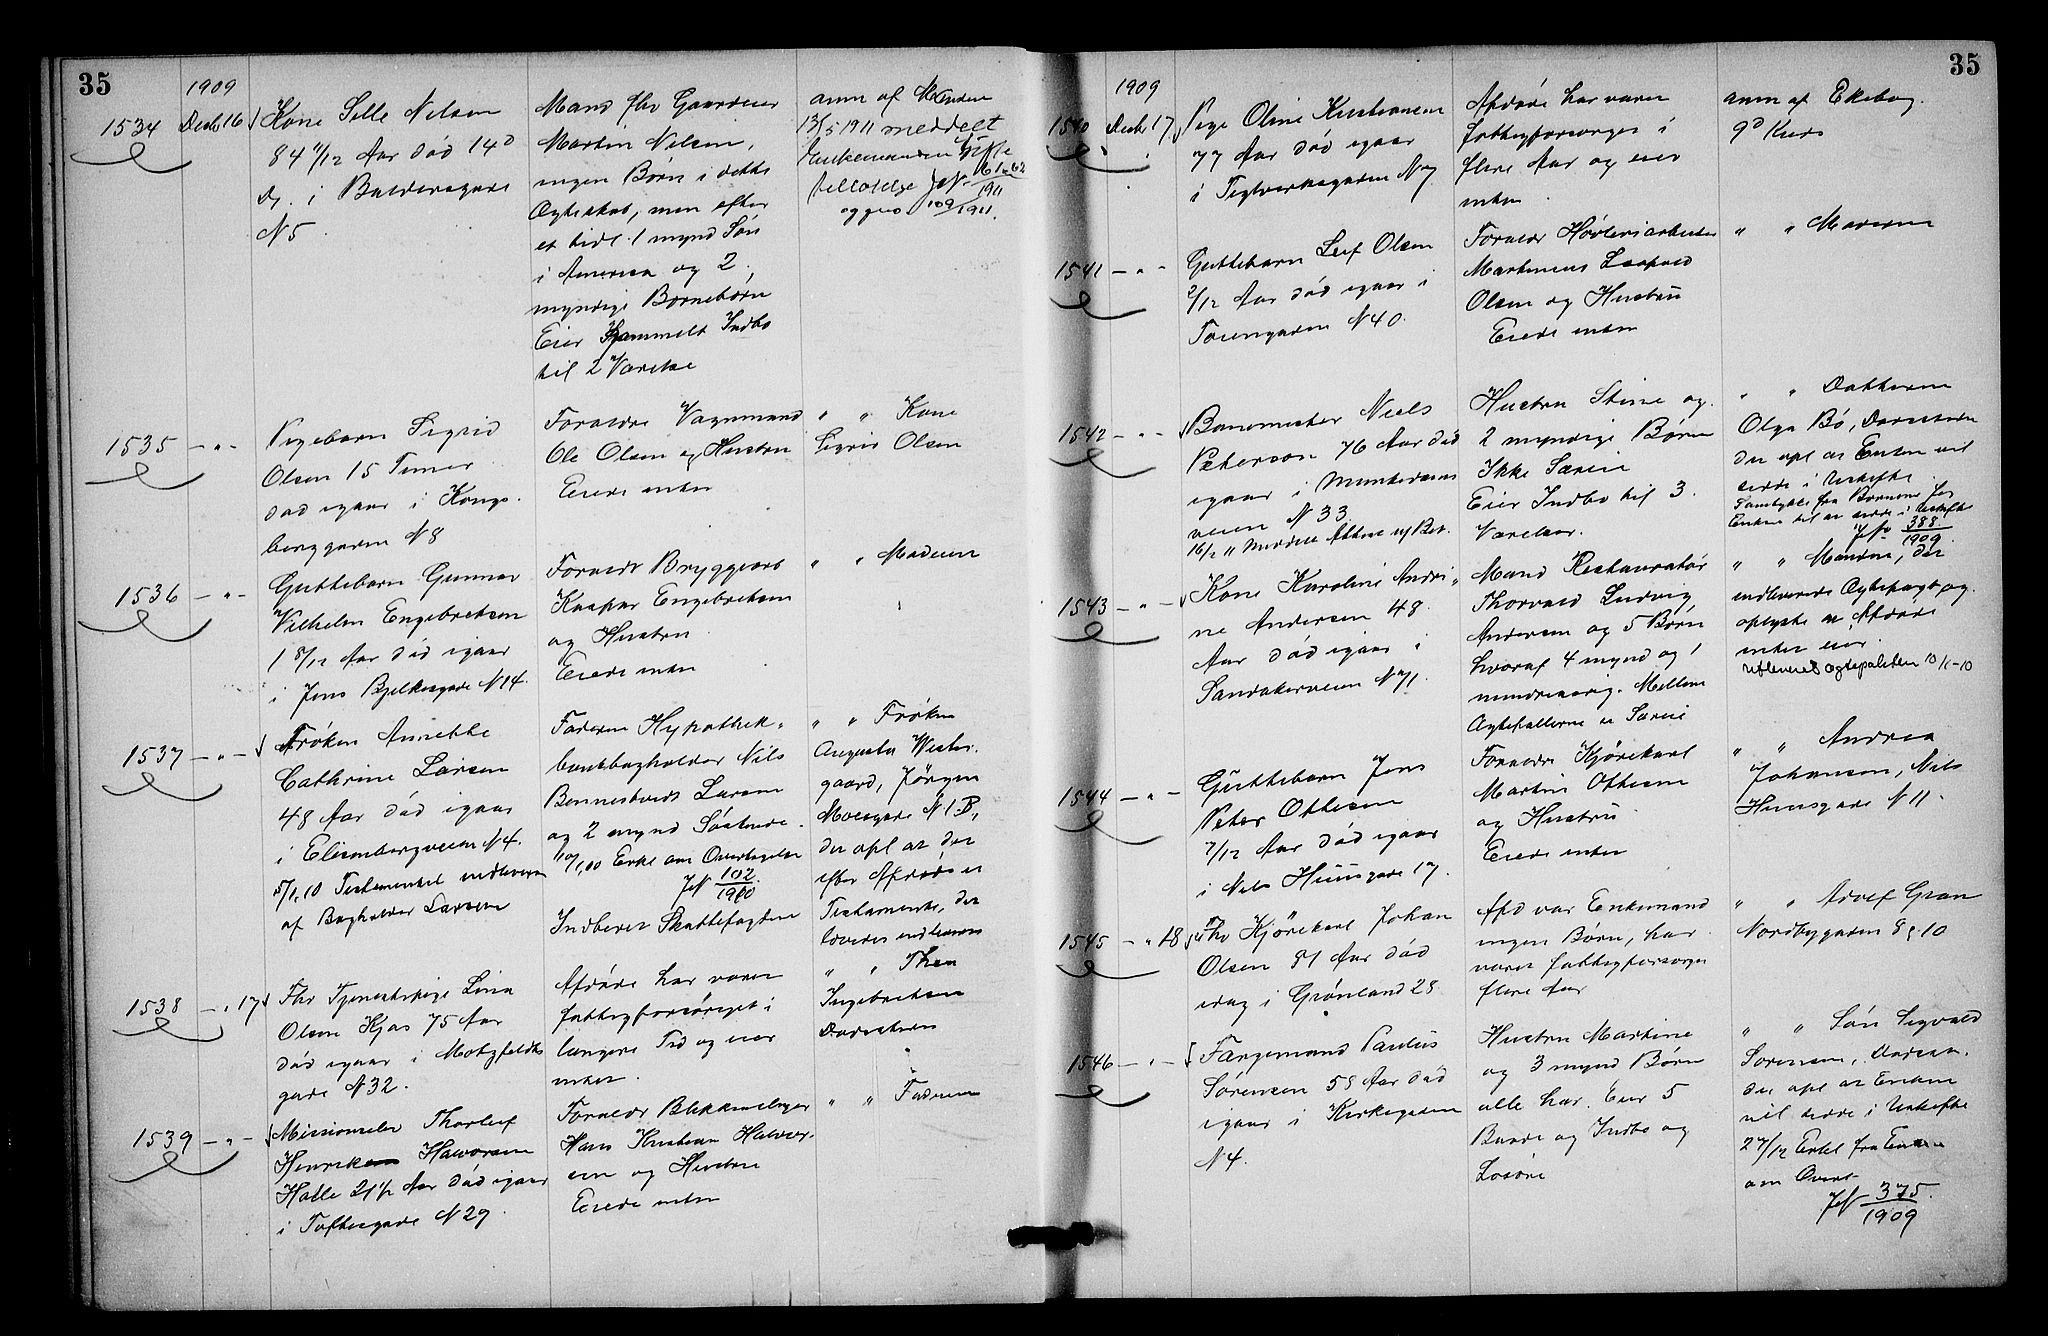 35
1909
1534 Decb 16 Kone Selle Nilsen
84 11/12 Aar død 14d
ds. i Baldersgade
N 5
Mand fhv Gaardeier
Martin Nilsen,
ingen Børn i dette
Ægteskab, men efter
et tidl. 1 mynd Søn
i America og 2
myndige Børnebørn
Eier gammelt Indbo
til 2 Værelse
anm af Manden
13/5 1911 meddelt
Enkemanden
tilladelse JN 61 62
1911
og pro 109/1911.
1535 - " - Pigebarn Sigrid
Olsen 15 Timer
død igaar i Kongs-
berggaden N 8
Forældre Vognmand
Ole Olsen og Hustru
Eiede intet
" " Kone
Sigrid Olsen
1536 - " - Guttebarn Gunnar
Vilhelm Engebretsen
1 8/12 Aar død igaar
i Jens Bjelkesgade N 14.
Forældr Bryggearb
Kaspar Engebretsen
og Hustru
Eiede intet
" " Moderen
1537 - " - Frøken Annethe
Cathrine Larsen
48 Aar død igaar
i Elisenbergveien N 4.
5/1.10 Testamentet indleveret
af Bogholder Larsen
Faderen Hypothek-
bankbogholder Nils
Bennestvedt Larsen
og 2 mynd Søskende.
10/1.00 Erkl om Overtagelse
JN 102
1910
Indberet Skattefogden
" " Frøken
Augusta Wester-
gaard, Jørgen
Moesgade N 1 B,
der opl at der
efter Afdøde er
Testamente, der
loves indleveret
1538 - " 17 Fhv Tjenestepige Lina
Olsen Kjos 75 Aar
død igaar i Motzfeldts
gade N 32.
Afdøde har været
fattigforsørget i
længere Tid og eier
intet.
" " Thea
Ingebretsen
Dødsstedet
1539 - " - Missionselev Thorleif
Henrik Halvorsen
Halle 21 1/2 Aar død igaar
i Toftesgade N 29.
Forældr Blikkenslager
Hans Kristian Halvor-
sen og Hustru
Eiede intet
" " Faderen
35
1909
1540 Decb 17 Pige Oline Kristiansen
77 Aar død igaar
i Teglverksgaden N 7
Afdøde har været
fattigforsørget i
flere Aar og eier
intet
anm af Ekeberg.
9d Kreds
1541 - " - Guttebarn Leif Olsen
2/12 Aar død igaar i
Torvengaden N 40.
Forældr Høvleriarbeider
Martinius Leopold
Olsen og Hustru
Eiede intet
" " Moderen
1542 - " - Banemester Niels
Peterson 76 Aar død
igaar i Munkedams
veien N 33.
Hustru Stine og
2 myndige Børn
Ikke Særeie
Eier Indbo til 3
Værelser.
" " Datteren
Olga Bø, Dødsstedet
der opl at Enken vil
sidde i Uskifte
Samtykke fra Børnene for
Enken til at sidde i Uskifte
JN 388
1909
1543 - " - Kone Karoline Andri-
ne Andersen 48
Aar død igaar i
Sandakerveien N 71.
Mand Restauratør
Thorvald Ludvig
Andersen og 5 Børn
hvoraf 4 mynd og 1
mindreaarig. Mellem
Ægtefællerne er Særeie
" " Manden, der
indleverede Ægtepagt og
oplyste at Afdøde
intet eier
Udleveret ægtepakten 10/11-10
1544 - " - Guttebarn Jens
Peter Ottesen
7/12 Aar død igaar
i Nils Huusgade 17.
Forældre Kjørekarl
Martin Ottesen
og Hustru
Eiede intet
" " Andrea
Johansen, Nils
Huusgade N 11.
1545 - " 18 Fhv Kjørekarl Johan
Olsen 81 Aar død
idag i Grønland 28
Afd var Enkemand
ingen Børn, har
været fattigforsørget
flere Aar
" " Adolf Gran
Nordbygaden 8 & 10
1546 - " - Færgemand Paulus
Sørensen 58 Aar død
igaar i Kirkegaden
N 4.
Hustru Martine
og 3 mynd Børn
alle her. Eier 5
Baade og Indbo og
Løsøre
" " Søn Sigvald
Sørensen, Dødsst.
der opl at Enken
vil sidde i Uskifte
27/12 Erkl fra Enken
om Overt
JN 375
1909